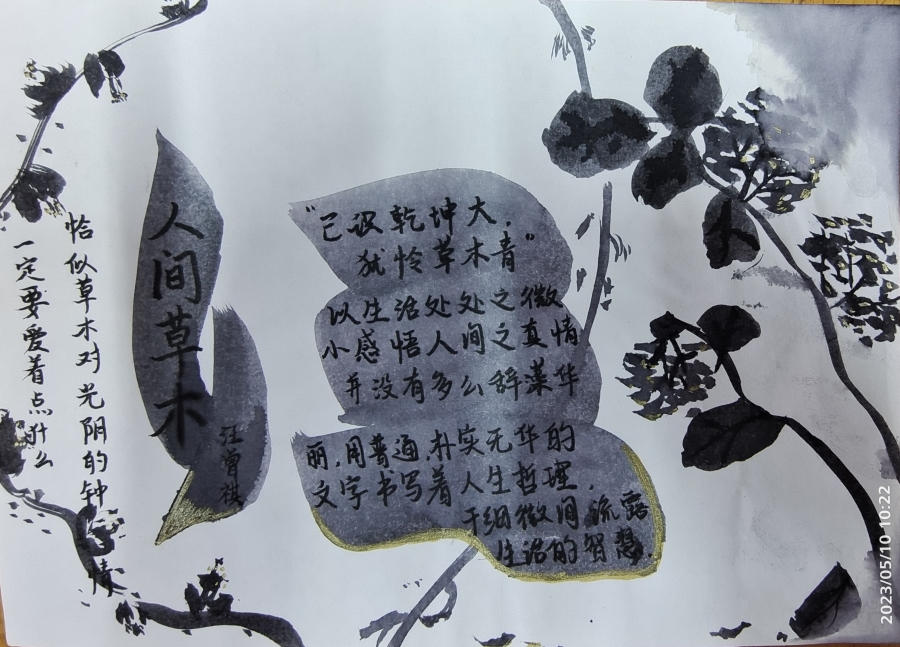 人间草木
汪曾祺
恰似草木对光阴的钟情
一定要爱着点什么
“已识乾坤大，
犹怜草木青”
以生活处处之微
小感悟人间之真情
并没有多么辞藻华
丽，用普通、朴实无华的
文字书写着人生哲理，
于细微间流露
生活的智慧.
2023/05/10 10:22